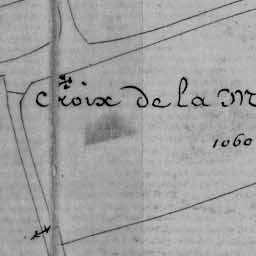 Croix de la M
1060